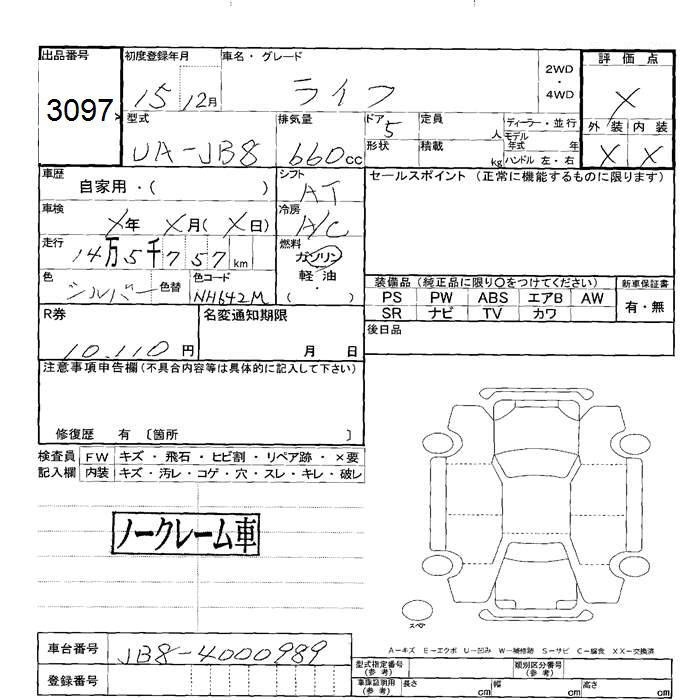 出品番号 初度登録年月 車名・グレード 2WD・4WD 評価点
3097 15 12月 ライフ X
型式 排気量 ドア 定員 ディーラー・並行 外装 内装
UA-JB8 660cc 5 人 モデル年式 年 X X
形状 積載 kg ハンドル 左・右
車歴 シフト セールスポイント (正常に機能するものに限ります)
自家用・( ) AT
車検 冷房
X年 X月(X日) A/C
走行 燃料
14万5千757km ガソリン
軽油
色 色替 色コード ・
シルバー NH642M ( )
装備品 (純正品に限り〇をつけてください) 新車保証書
PS PW ABS エアB AW 有・無
SR ナビ TV カワ
R券 名変通知期限 後日品
10.110円 月 日
注意事項申告欄(不具合内容等は具体的に記入して下さい)
修復歴 有 〔箇所 〕
検査員 FW キズ・飛石・ヒビ割・リペア跡・×要
記入欄 内装 キズ・汚レ・コゲ・穴・スレ・キレ・破レ
ノークレーム車
スペア
A-キズ E-エクボ U-凹み W-補修跡 S-サビ C-腐食 XX-交換済
車台番号 JB8-4000989
型式指定番号(参考) 類別区分番号(参考)
登録番号 車庫証明用(参考) 長さ cm 幅 cm 高さ cm